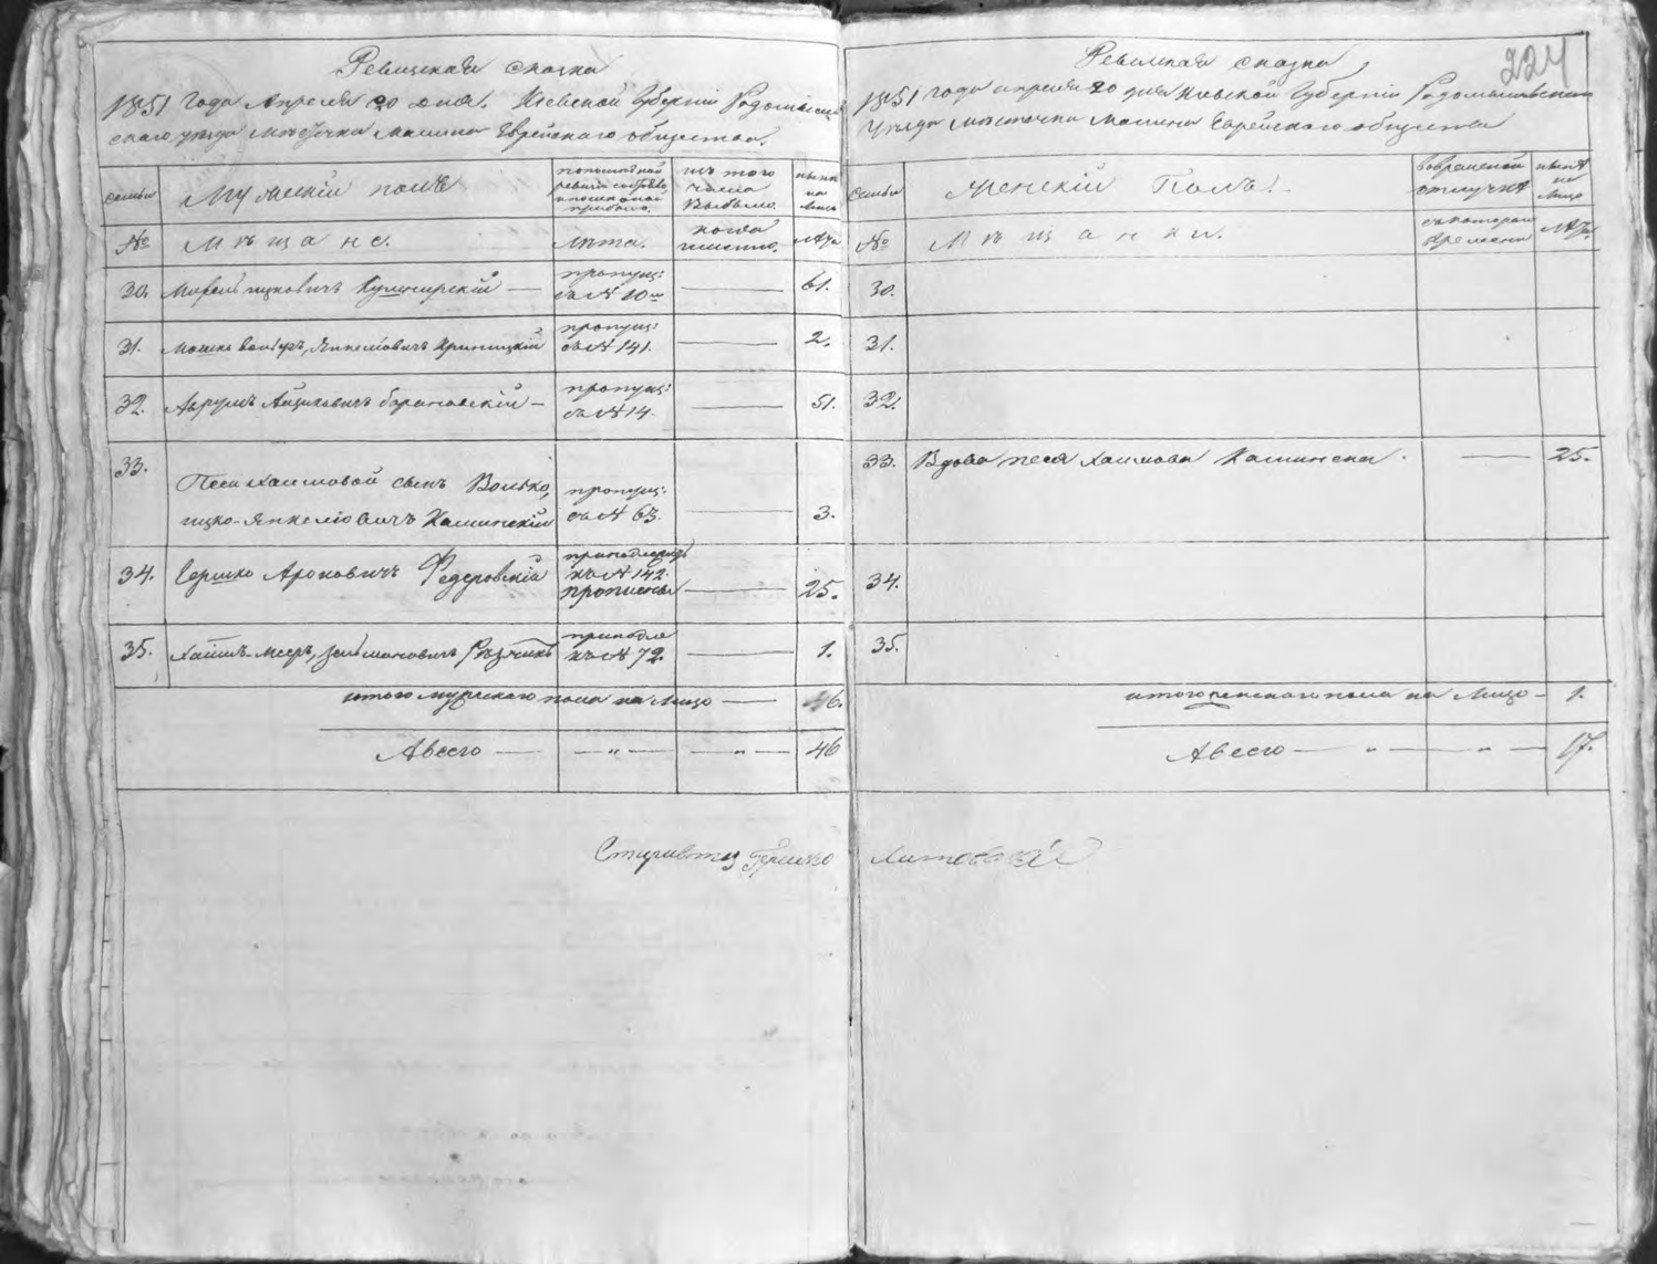 Ревизская сказка
1851 года Апреля 20 дня. Кіевской Губерніи Радомысль
скаго уезда местечка Малина Еврейскаго общества.
семьи
Мужескій полъ
по последней ревизіи состояло и после оной прибыло.
изъ того числа выбыло.
ныне на лицо
№
Мѣщане.
лѣта.
когда именно.
лѣта
30.
Ицковичъ
пропущ:
въ № 10
61.
31.
Мошко Янкелiовичъ Криницкій
пропущ:
въ № 141.
2.
32.
Аврумъ Айзиковичъ Барановскій
пропущ:
въ № 14.
51.
33.
Песи Хаимовой сынъ Волько,
ицко-Янкеліовичъ Каминскій
пропущ:
въ № 63.
3.
34.
Гершко Ароновичъ Федеровскій
къ № 142.
25.
35.
Хаимъ-Мееръ, Зельмановичъ Резникъ
принадле
къ № 72.
1.
итого мужескаго пола на лицо
46.
А всего — " — " —
46
Старшина Гершко
224
Ревизская сказка
1851 года апреля 20 дня Кіевской Губерніи Радомысльскаго
Уезда местечка Малина Еврейскаго общества
семьи
Женскій Полъ.
во временной отлучке
ныне на лицо
№
Мѣщанки.
съ котораго времени
лѣта.
30.
31.
32.
33.
Вдова песя Хаимова Каминска.
25.
34.
35.
итого женскаго пола на лицо
1.
А всего — " — " —
17.